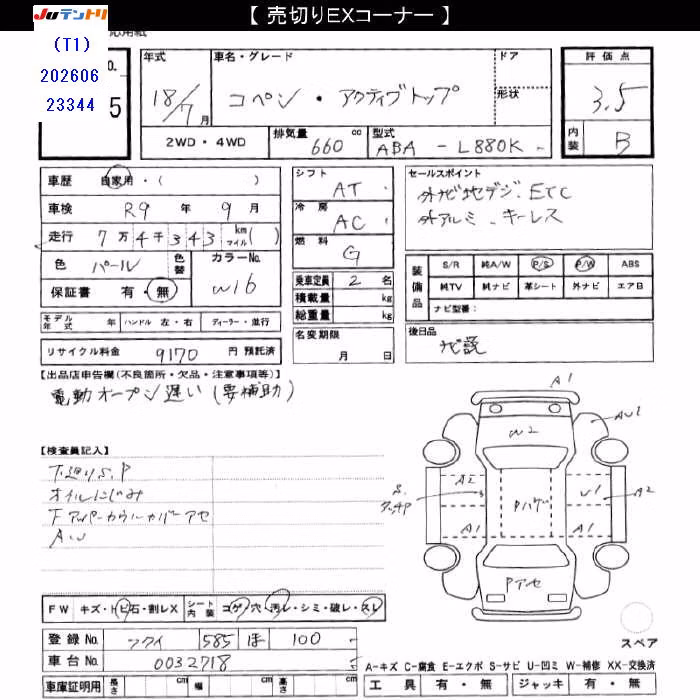 【 売切りEXコーナー 】
JUテントリ
(T1)
202606
23344
5
年式
18/7月
車名・グレード
コペン ・ アクティブトップ
ドア
形状
評価点
3.5
内装
B
2WD・4WD
排気量 660 cc
型式 ABA - L880K -
車歴 自家用・( )
車検 R9 年 9 月
走行 7万4千343 km マイル( )
色 パール
色替
カラーNo. W16
保証書 有・無
シフト AT
冷房 AC
燃料 G
乗車定員 2 名
積載量 kg
総重量 kg
名変期限
月 日
セールスポイント
外ナビ地デジ、ETC
外アルミ、キーレス
装備品
S/R 純A/W P/S P/W ABS
純TV 純ナビ 革シート 外ナビ エアB
ナビ型番:
後日品
ナビ説
モデル年式 年 ハンドル 左・右 ディーラー・並行
リサイクル料金 9170 円 預託済
【出品店申告欄(不良箇所・欠品・注意事項等)】
電動オープン遅い(要補助)
【検査員記入】
下廻りS、P
オイルにじみ
Fアッパーカウルカバーアセ
A、U
A1
AU1
W2
A2
Pハゲ
U1
A2
A1
A1
Pアセ
スペア
FW キズ・トビ石・割レX シート内装 コゲ・穴・汚レ・シミ・破レ・スレ
登録No. フクイ 585 ほ 100
車台No. 0032718
車庫証明用 長さ cm 幅 cm 高さ cm
A-キズ C-腐食 E-エクボ S-サビ U-凹ミ W-補修 XX-交換済
工具 有・無 ジャッキ 有・無